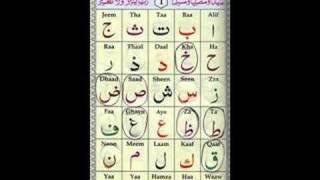 1
Jeem Tha Taa Baa Alif
ج ث ت ب ا
Raa Thaal Daal Kha Ha
ر ذ د خ ح
Dhaad Saad Sheen Seen Zaa
ض ص ش س ز
Faa Ghayn Ayn Za Ta
ف غ ع ظ ط
Noon Meem Laam Kaaf Qaaf
ن م ل ك ق
Yaa Yaa Hamza Haa